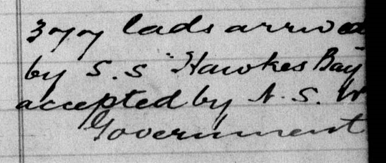 377 lads arrived
by S.S "Hawkes Bay
accepted by N. S. W
Government